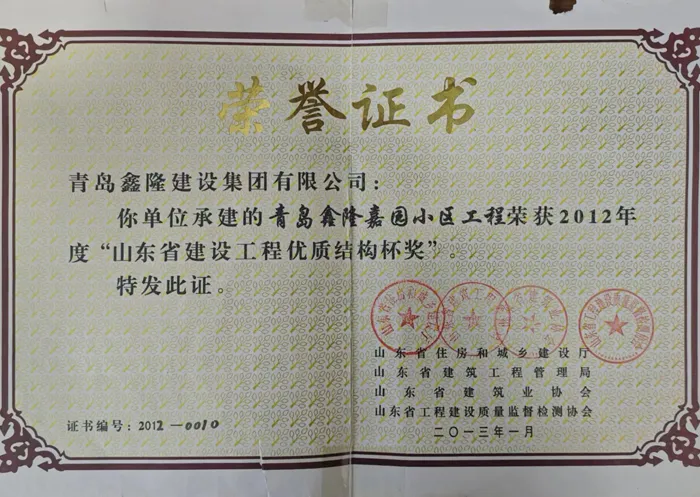 荣誉证书
青岛鑫隆建设集团有限公司：
你单位承建的青岛鑫隆嘉园小区工程荣获2012年
度“山东省建设工程优质结构杯奖”。
特发此证。
山东省住房和城乡建设厅
山东省建筑工程管理局
山东省建筑业协会
山东省工程建设质量监督检测协会
证书编号：2012-0010
二〇一三年一月